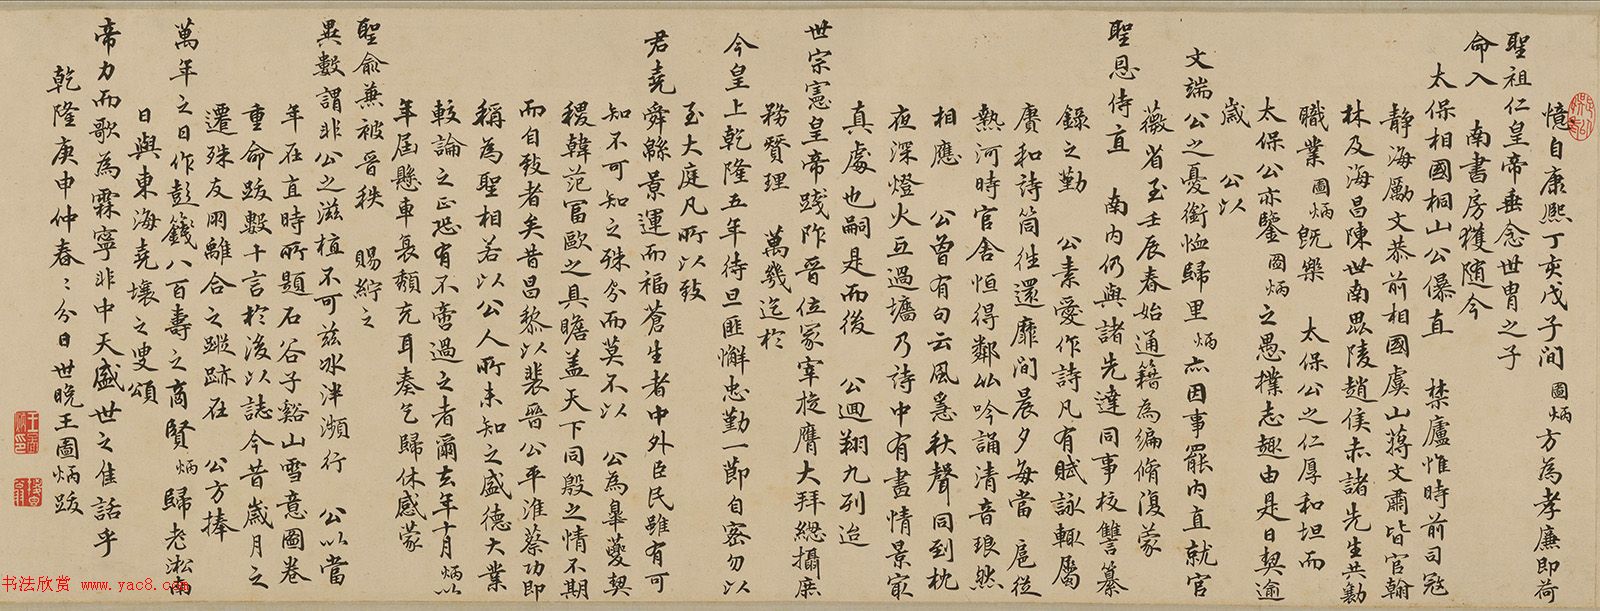 憶自康熙丁亥戊子間 圖炳方為孝廉即荷
聖祖仁皇帝垂念世冑之子
命入 南書房獲隨今
太保相國桐山公瀑直 禁廬惟時前司寇
靜海勵文恭前相國虞山蔣文肅皆官翰
林及海昌陳世南毘陵趙侯赤諸先生共勷
職業圖炳既樂 太保公之仁厚和坦而
太保公亦鑒圖炳之愚撲志趣由是日契逾
歲 公以
文端公之憂銜恤歸里炳亦因事罷內直就官
薇省至壬辰春始通籍為編脩復蒙
聖恩侍直 南內仍與諸先達同事校讐纂
錄之勤 公素愛作詩凡有賦詠輒屬
賡和詩筒徃還靡間晨夕每當 扈從
熱河時官舍恒得鄰竝吟誦清音琅然
相應 公曾有句云風急秋聲同到枕
夜深燈火互過墻乃詩中有畫情景㝡
真處也嗣是而後 公迴翔九列迨
世宗憲皇帝踐阼晉位冢宰梭膺大拜總攝庶
務贊理 萬幾迄於
今皇上乾隆五年待旦匪懈忠勤一節自宻勿以
至大庭凡所以致
君堯舜緜景運而福蒼生者中外臣民雖有可
知不可知之殊分而莫不以 公為臯夔契
稷韓范冨歐之具瞻盖天下同殷之情不期
而自致者矣昔昌黎以裴晉公平淮蔡功即
稱為聖相若以公人所未知之盛德大業
較論之正恐有不啻過之者爾去年十月炳以
年屆懸車衰頹充耳奏乞歸休感蒙
聖俞兼被晉秩 賜紵之
異數謂非公之滋植不可茲氷泮瀕行 公以當
年在直時所題石谷子谿山雪意圖卷
重命跋數十言於後以誌今昔歲月之
遷殊友朋離合之蹤跡在 公方捧
萬年之日作彭籛八百壽之商賢炳歸老淞南
日與東海堯壤之叟頌
帝力而歌為霖寧非中天盛世之佳話乎
乾隆庚申仲春二分日世晚王圖炳跋
书法欣赏 www.yac8.com